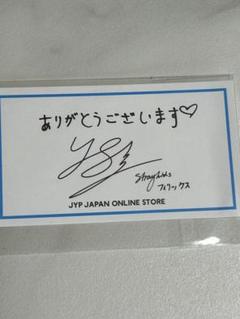 ありがとうございます♡
Stray Kids
フィリックス
JYP JAPAN ONLINE STORE